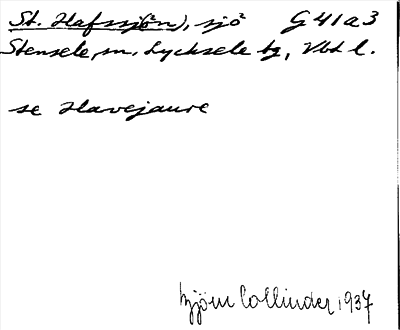 St. Hafssjö(n), sjö G 41 a 3
Stensele, sn. Lycksele tg, Vbt l.
se Havejaure
Björn Collinder, 1937